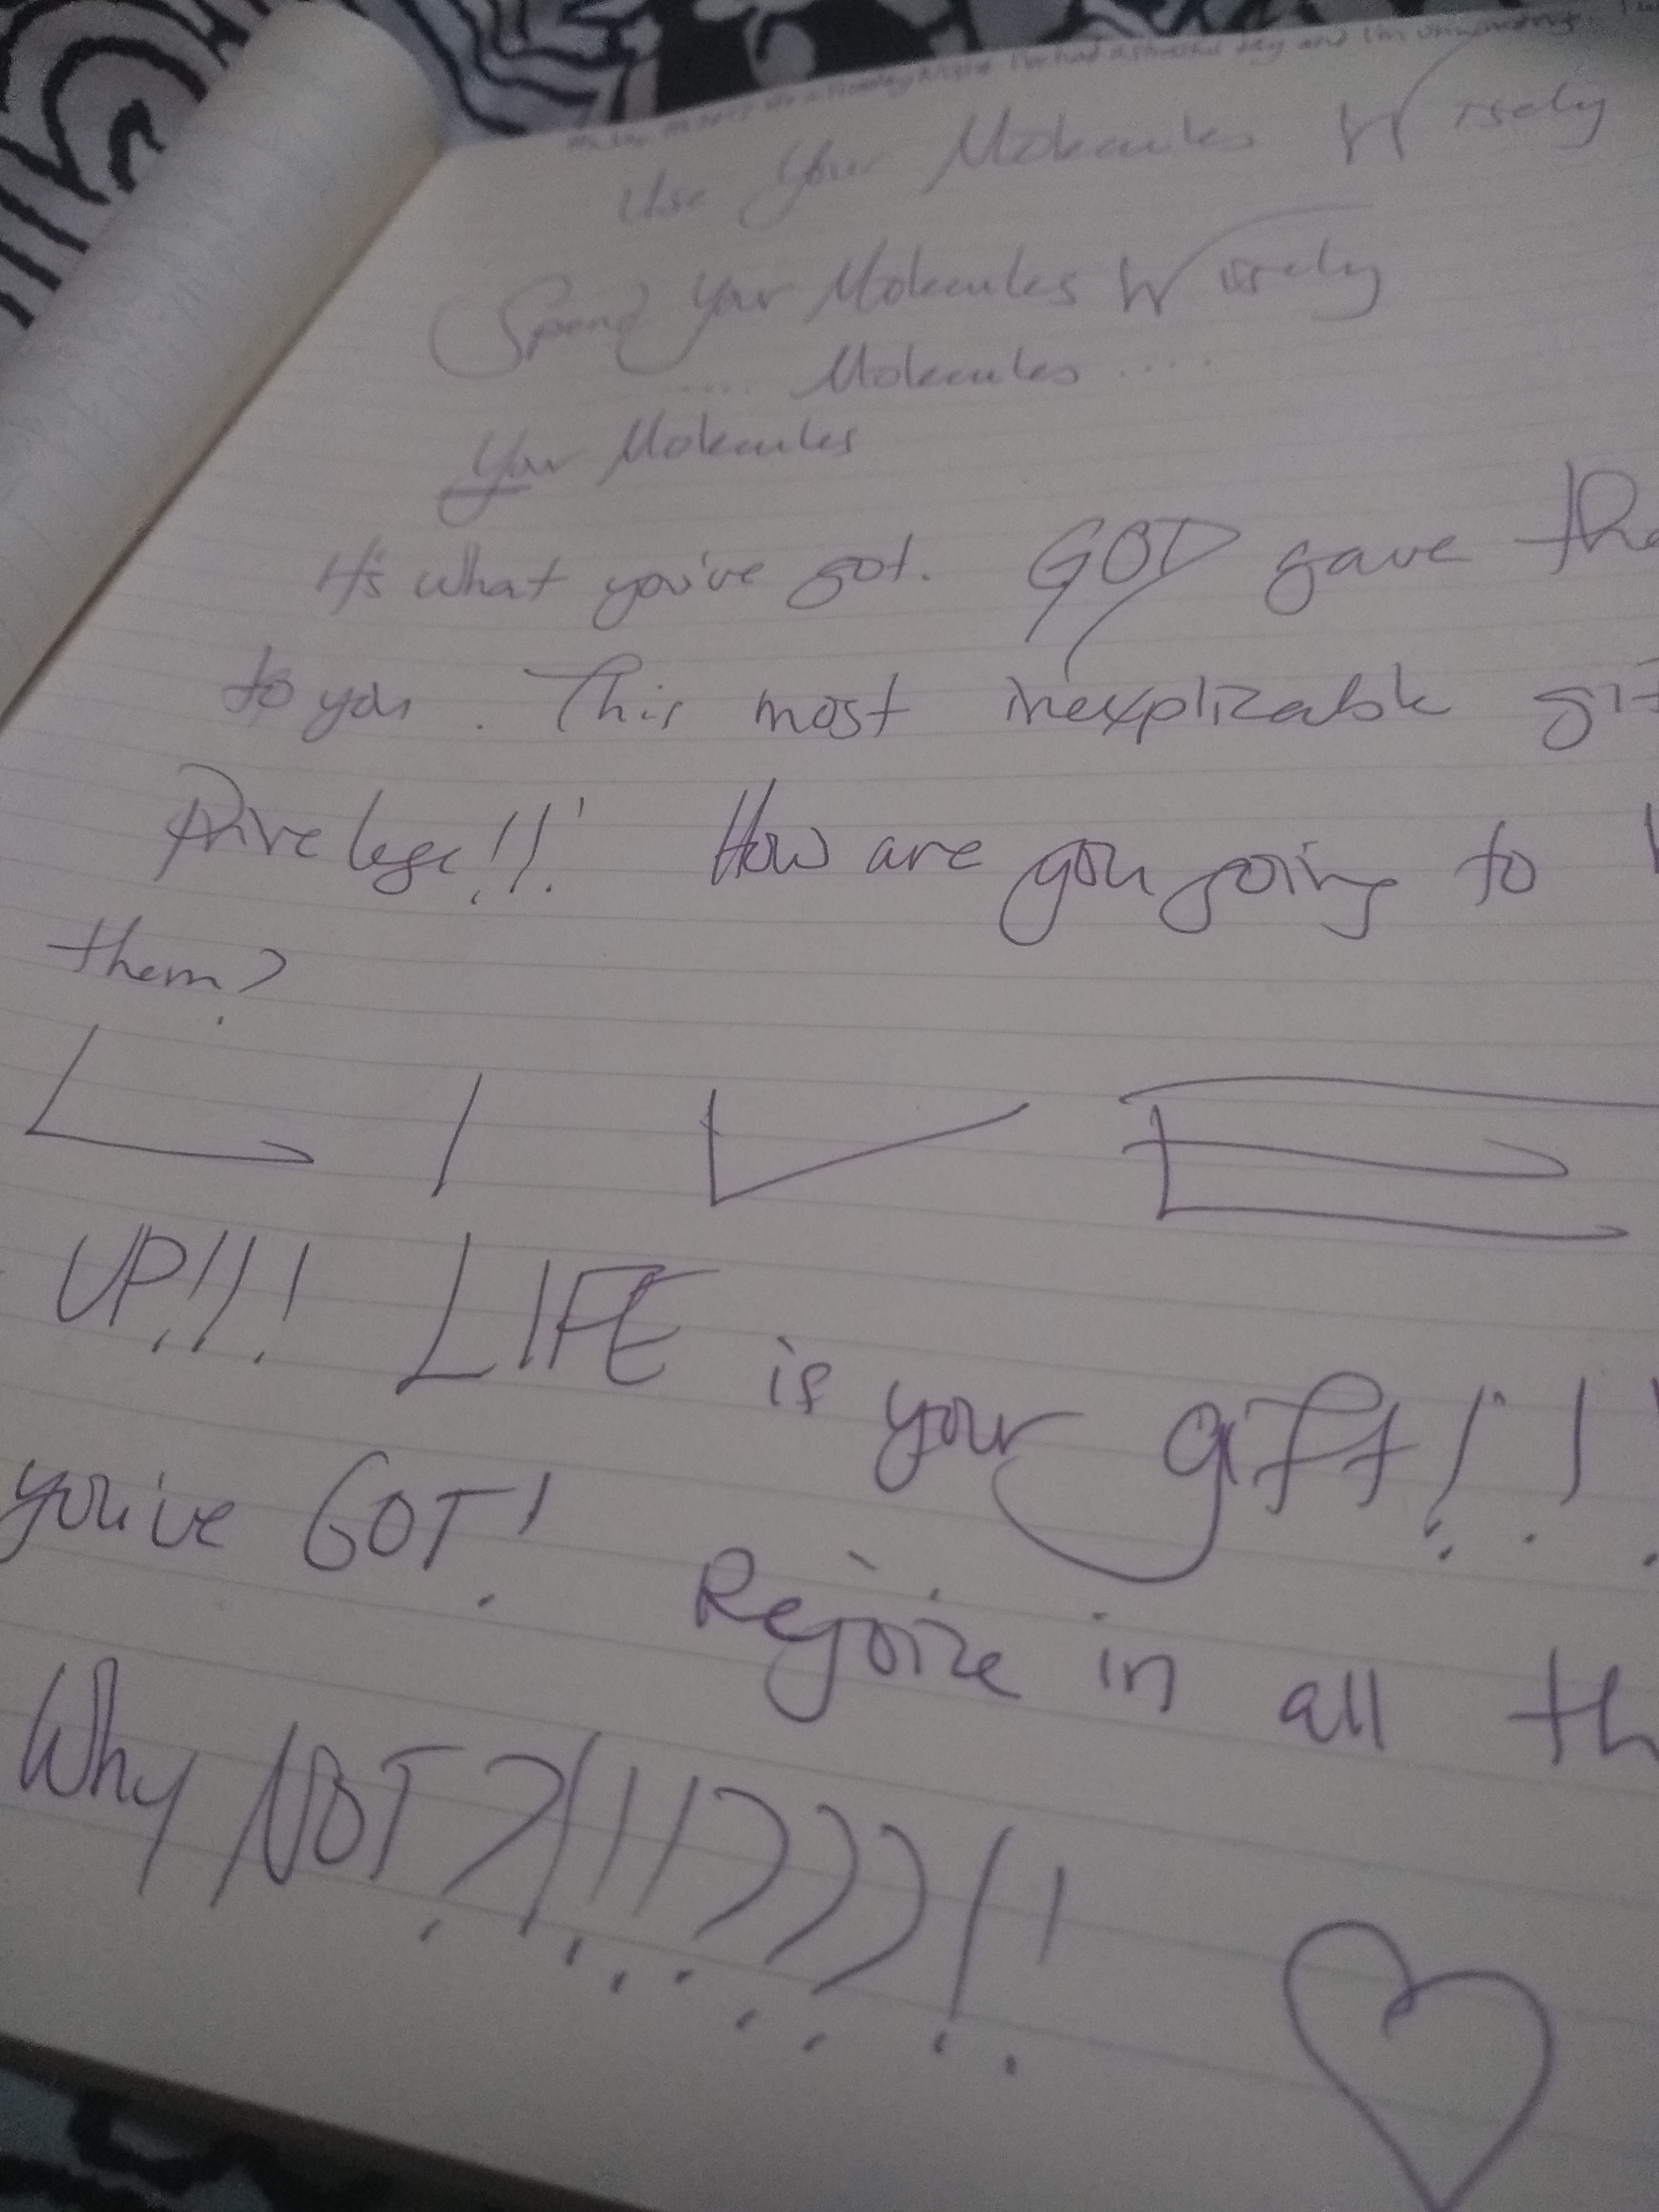 I've had a stressful day and I'm unwinding.
Use Your Molecules Wisely
Spend Your Molecules Wisely
.... Molecules ....
Your Molecules
It's what you've got. GOD gave the
to you. This most inexplicable gif
Privelege!!! How are you going to
them?
LIVE
UP!!! LIFE is your gift!!!
you've GOT! Rejoice in all th
Why NOT?!!!???!!